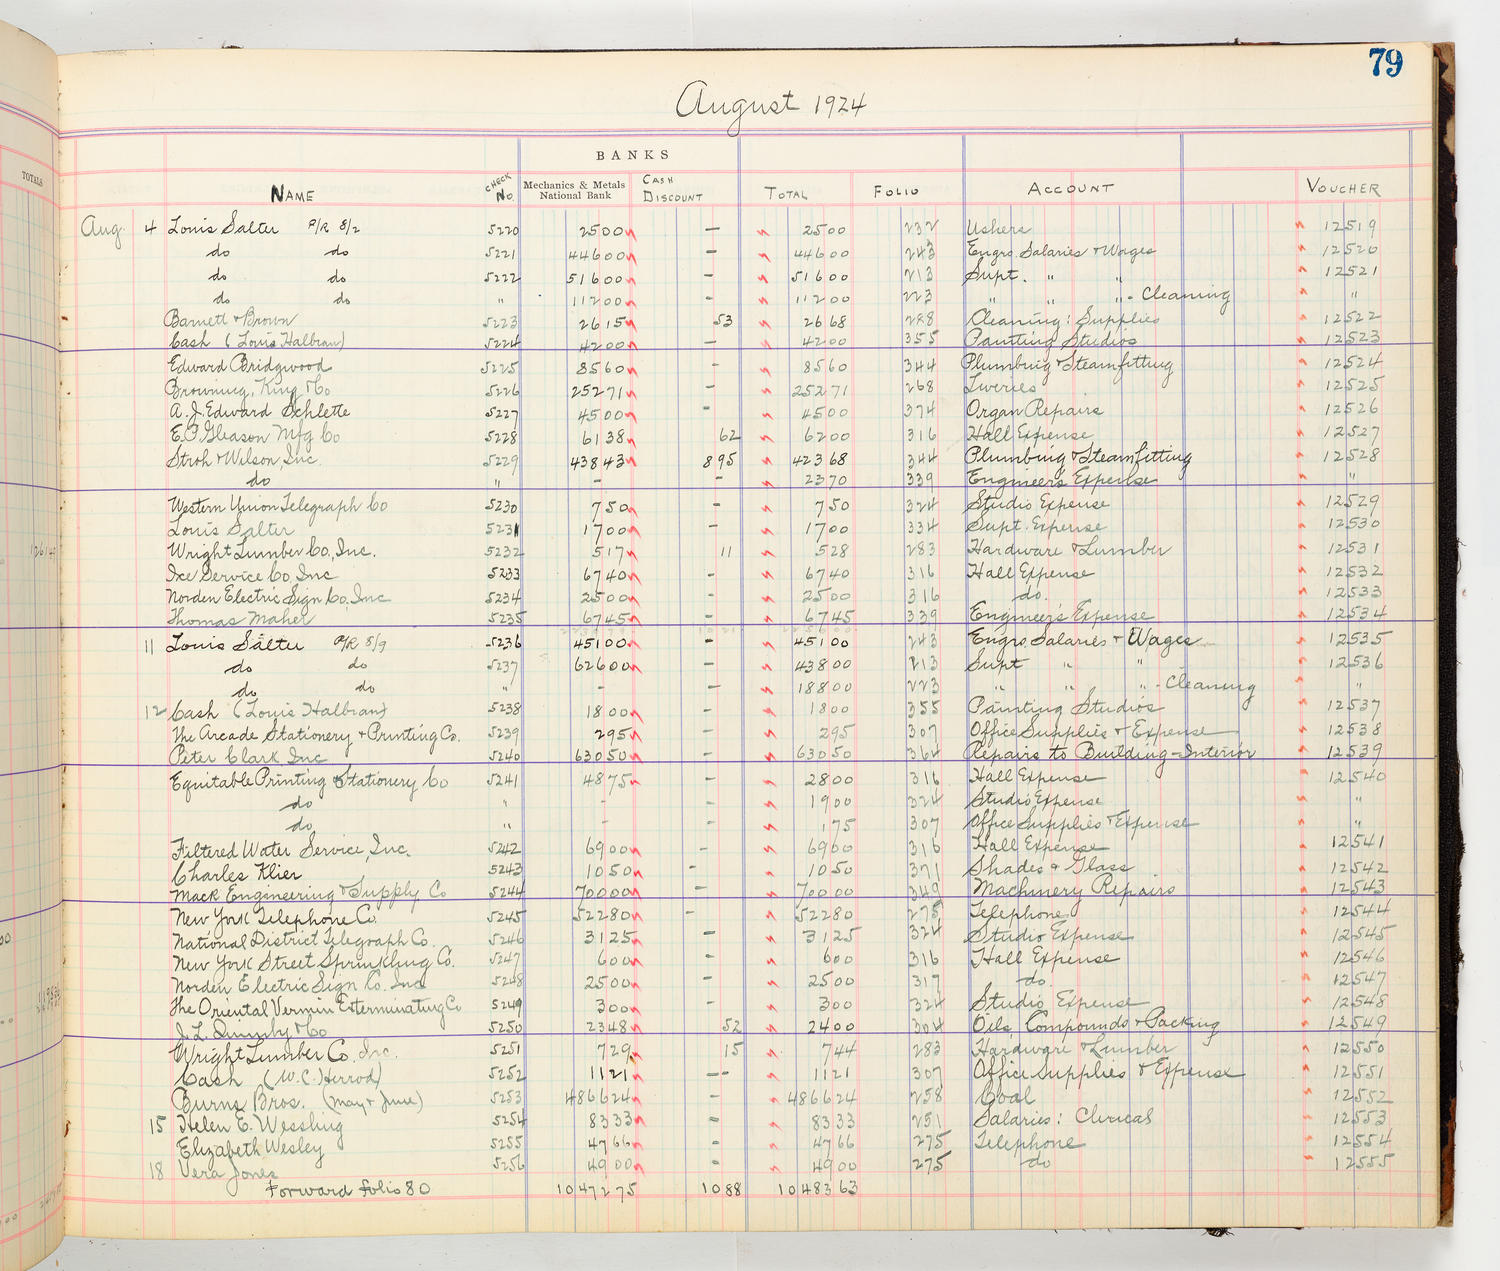 79
August 1924
TOTALS
BANKS
NAME CHECK No. Mechanics & Metals National Bank CASH DISCOUNT TOTAL FOLIO ACCOUNT VOUCHER
Aug. 4 Louis Salter P/R 8/2 5220 2500 — 2500 232 Ushers 12519
do do 5221 44600 — 44600 243 Engrs. Salaries & Wages 12520
do do 5222 51600 — 51600 213 Supt. " " 12521
do do " 11200 - 11200 223 " " " - Cleaning "
Barnett & Brown 5223 2615 53 2668 288 Cleaning: Supplies 12522
Cash (Louis Halbran) 5224 4200 — 4200 355 Painting Studios 12523
Edward Bridgwood 5225 8560 — 8560 344 Plumbing & Steamfitting 12524
Browning, King & Co 5226 25271 - 25271 268 Liveries 12525
A. J. Edward Schlette 5227 4500 - 4500 374 Organ Repairs 12526
E. P. Gleason Mfg Co 5228 6138 62 6200 316 Hall Expense 12527
Stroh & Wilson, Inc. 5229 43843 895 42368 344 Plumbing & Steamfitting 12528
do " - - 2370 339 Engineer's Expense "
Western Union Telegraph Co 5230 750 - 750 324 Studio Expense 12529
Louis Salter 5231 1700 - 1700 334 Supt. Expense 12530
Wright Lumber Co., Inc. 5232 517 11 528 283 Hardware & Lumber 12531
Ice Service Co, Inc 5233 6740 - 6740 316 Hall Expense 12532
Norden Electric Sign Co. Inc 5234 2500 - 2500 316 do. 12533
Thomas Maher 5235 6745 - 6745 339 Engineer's Expense 12534
11 Louis Salter P/R 8/9 5236 45100 - 45100 243 Engrs. Salaries & Wages 12535
do do 5237 62600 - 43800 213 Supt " " 12536
do do " - — 18800 223 " " " - Cleaning "
12 Cash (Louis Halbran) 5238 1800 - 1800 355 Painting Studios 12537
The Arcade Stationery & Printing Co. 5239 295 - 295 307 Office Supplies & Expense 12538
Peter Clark Inc 5240 63050 - 63050 364 Repairs to Building-Interior 12539
Equitable Printing & Stationery Co 5241 4875 - 2800 316 Hall Expense 12540
do " - - 1900 324 Studio Expense "
do " - - 175 307 Office Supplies & Expense "
Filtered Water Service, Inc. 5242 6900 - 6900 316 Hall Expense 12541
Charles Klier 5243 1050 - 1050 371 Shades & Glass 12542
Mack Engineering & Supply Co 5244 70000 - 70000 349 Machinery Repairs 12543
New York Telephone Co. 5245 52280 - 52280 275 Telephone 12544
National District Telegraph Co. 5246 3125 - 3125 324 Studio Expense 12545
New York Street Sprinkling Co. 5247 600 - 600 316 Hall Expense 12546
Norden Electric Sign Co. Inc 5248 2500 - 2500 317 do. 12547
The Oriental Vermin Exterminating Co 5249 300 - 300 324 Studio Expense 12548
J. L. Quimby & Co 5250 2348 52 2400 304 Oils, Compounds & Packing 12549
Wright Lumber Co. Inc. 5251 729 15 744 283 Hardware & Lumber 12550
Cash (W. C. Herrod) 5252 1121 — 1121 307 Office Supplies & Expense 12551
Burns Bros. (May & June) 5253 486624 - 486624 258 Coal 12552
15 Helen E. Wessling 5254 8333 - 8333 251 Salaries: Clerical 12553
Elizabeth Wesley 5255 4766 - 4766 275 Telephone 12554
18 Vera Jones 5256 4900 - 4900 275 do 12555
Forward folio 80 1047275 1088 1048363